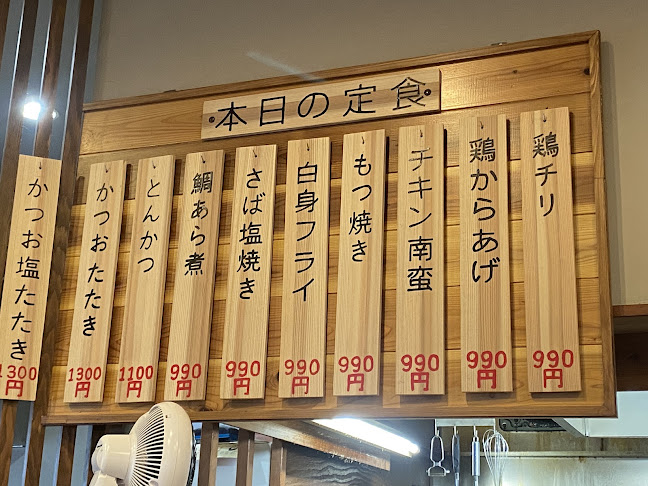 本日の定食
鶏チリ
990円
鶏からあげ
990円
チキン南蛮
990円
もつ焼き
990円
白身フライ
990円
さば塩焼き
990円
鯛あら煮
990円
とんかつ
1100円
かつおたたき
1300円
かつお塩たたき
1300円